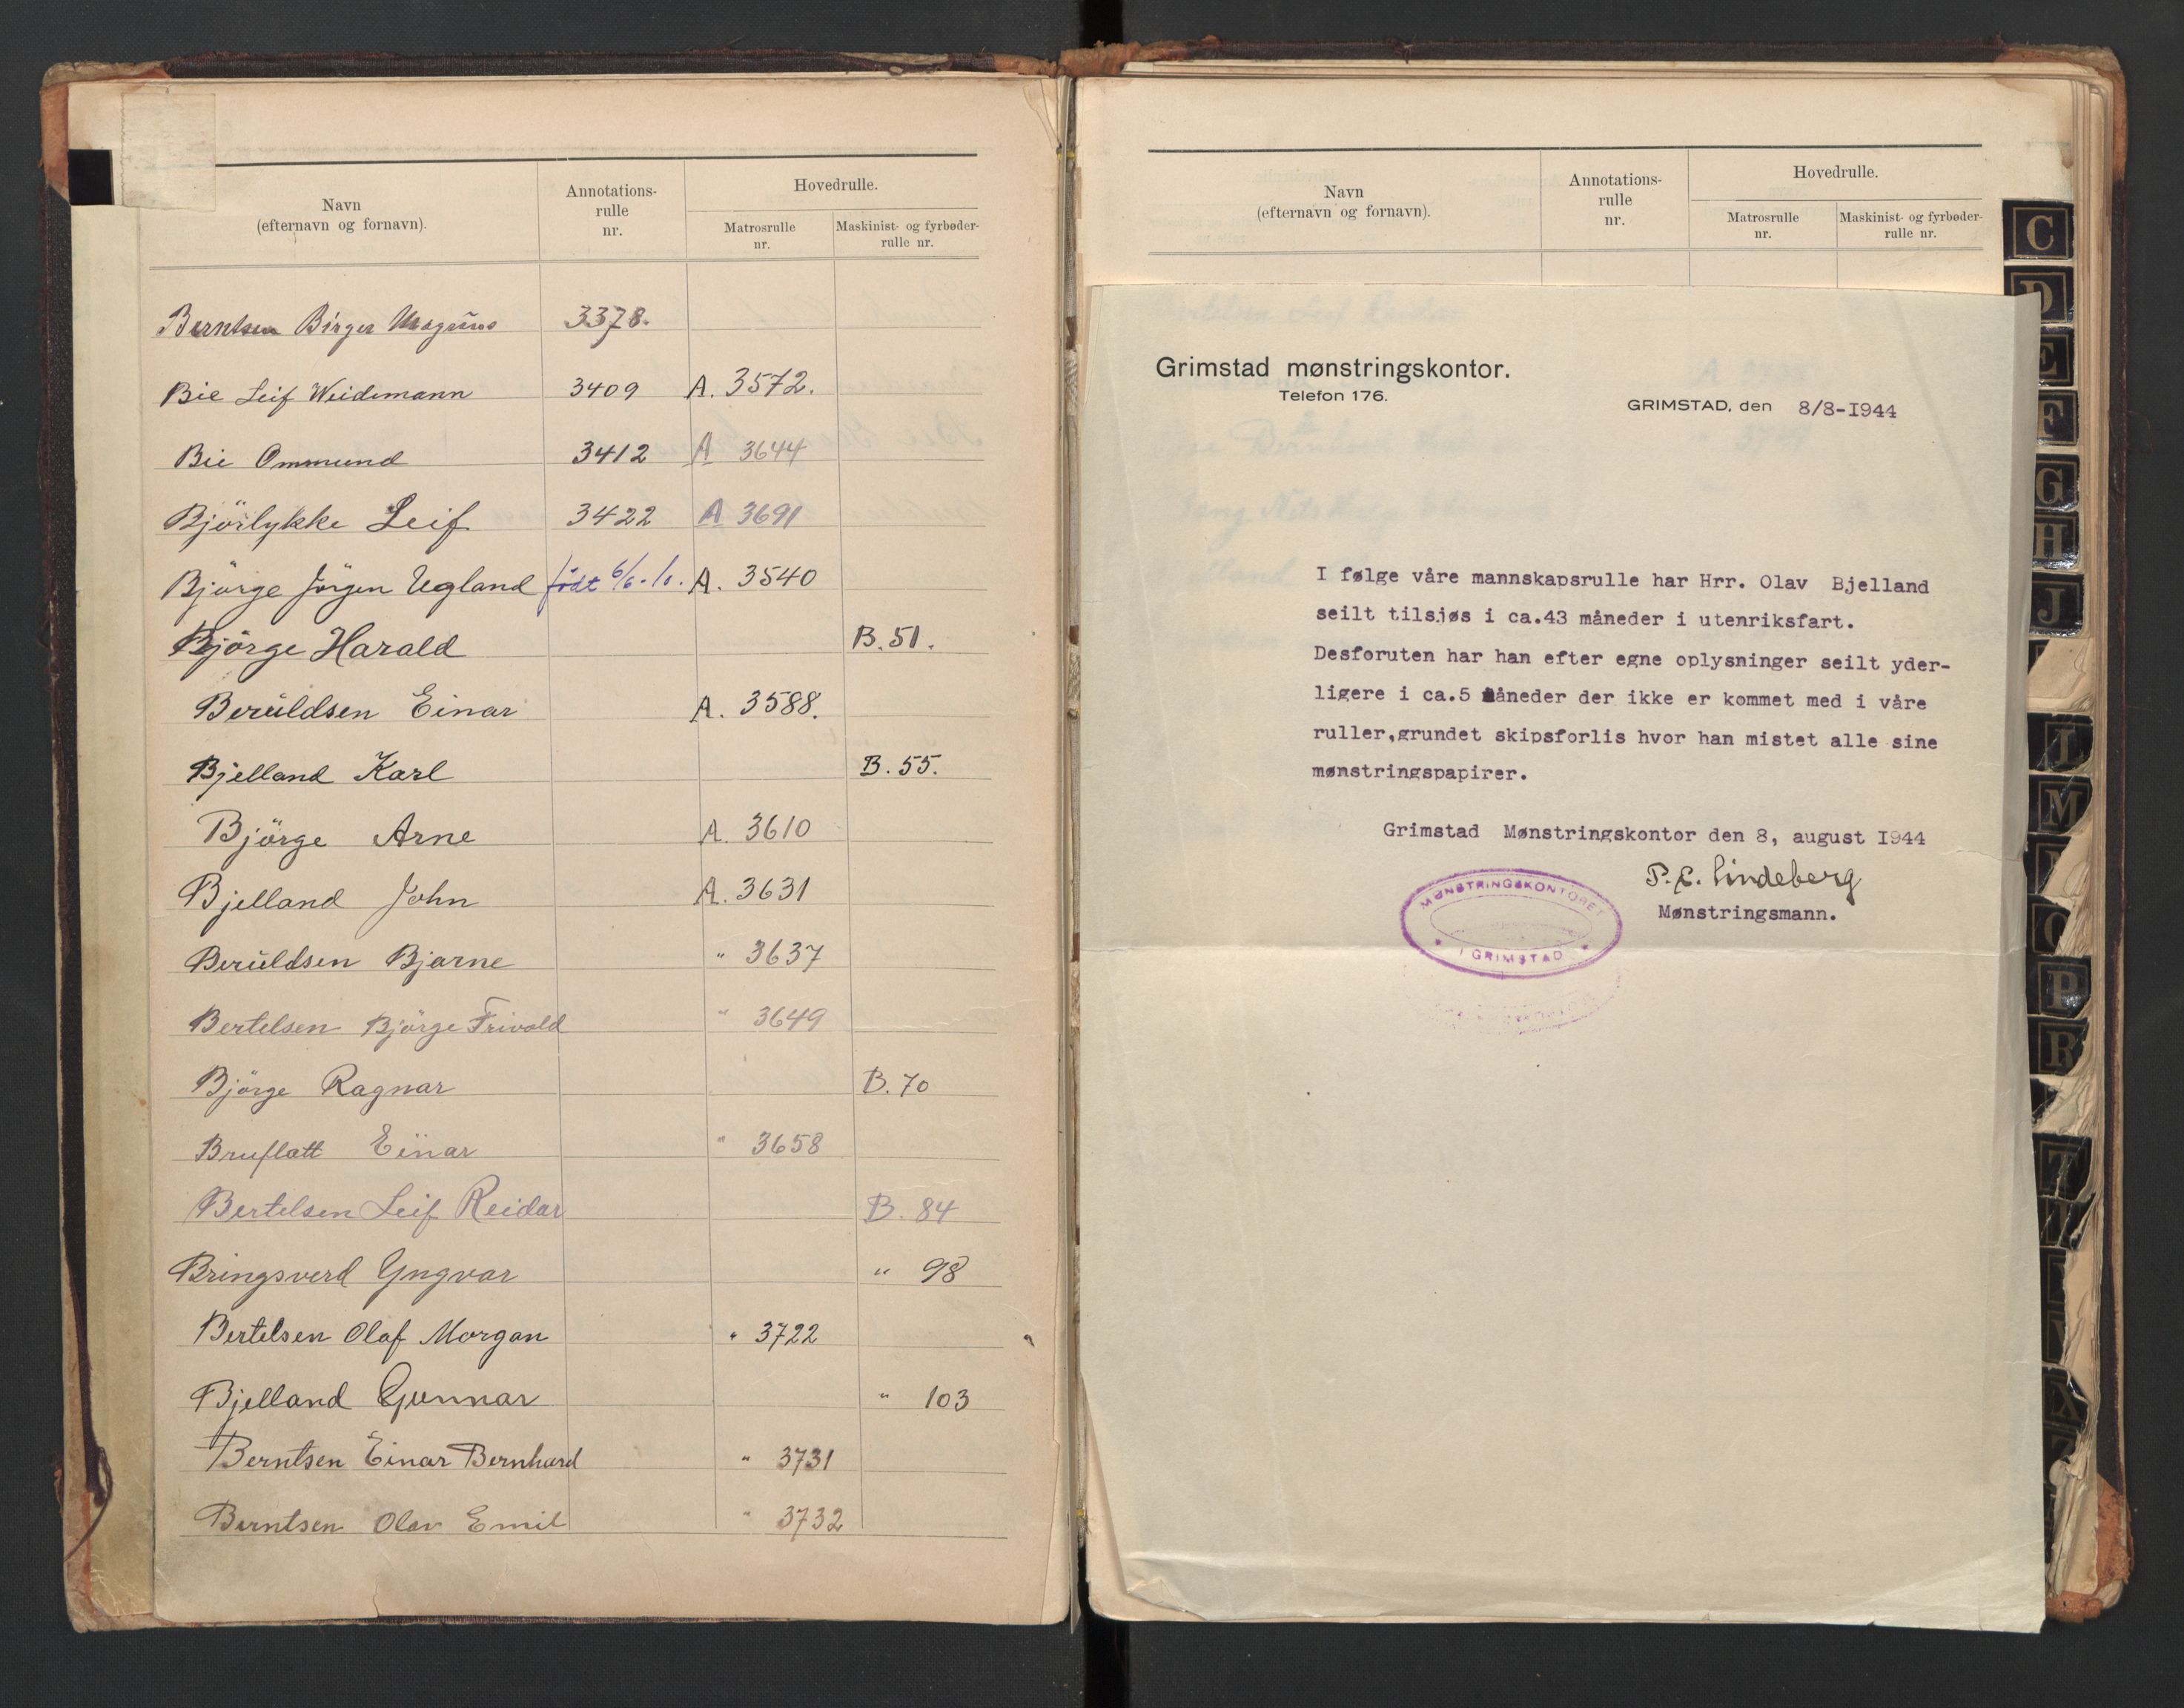 Navn
(efternavn og fornavn).
Annotations-
rulle
nr.
Hovedrulle.
Matrosrulle
nr.
Maskinist- og fyrbøder-
rulle nr.
Berntsen Birger Magnus 3378.
Bie Leif Weidemann 3409 A. 3572.
Bie Ommund 3412 A 3644
Björlykke Leif 3422 A 3691
Björge Jörgen Ugland født 6/6-10. A. 3540
Björge Harald B. 51.
Beruldsen Einar A. 3588.
Bjelland Karl B. 55.
Björge Arne A. 3610
Bjelland John A. 3631
Beruldsen Bjarne " 3637
Bertelsen Björge Frivold " 3649
Björge Ragnar B. 70
Bruflatt Einar " 3658
Bertelsen Leif Reidar B. 84
Bringsverd Yngvar " 98
Bertelsen Olaf Morgan " 3722
Bjelland Gunnar " 103
Berntsen Einar Bernhard " 3731
Berntsen Olav Emil " 3732
Navn
(efternavn og fornavn).
Annotations-
rulle
nr.
Hovedrulle.
Matrosrulle
nr.
Maskinist- og fyrbøder-
rulle nr.
Grimstad mønstringskontor.
Telefon 176.
GRIMSTAD, den 8/8-I944
I følge våre mannskapsrulle har Hrr. Olav Bjelland
seilt tilsjøs i ca.43 måneder i utenriksfart.
Desforuten har han efter egne oplysninger seilt yder-
ligere i ca.5 måneder der ikke er kommet med i våre
ruller,grundet skipsforlis hvor han mistet alle sine
mønstringspapirer.
Grimstad Mønstringskontor den 8, august I944
P. E. Lindeberg
Mønstringsmann.
MØNSTRINGSKONTORET
I GRIMSTAD
C
D
E
F
G
H
J
M
O
P
R
T
X